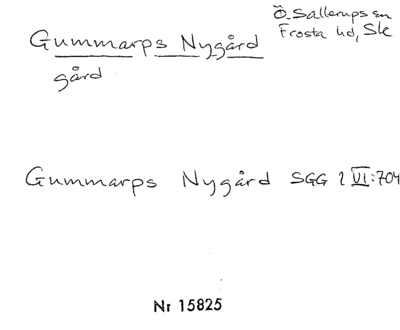 Gummarps Nygård
Ö. Sallerups sn
Frosta hd, Sk
gård
Gummarps Nygård SGG 2 VI:704
Nr 15825